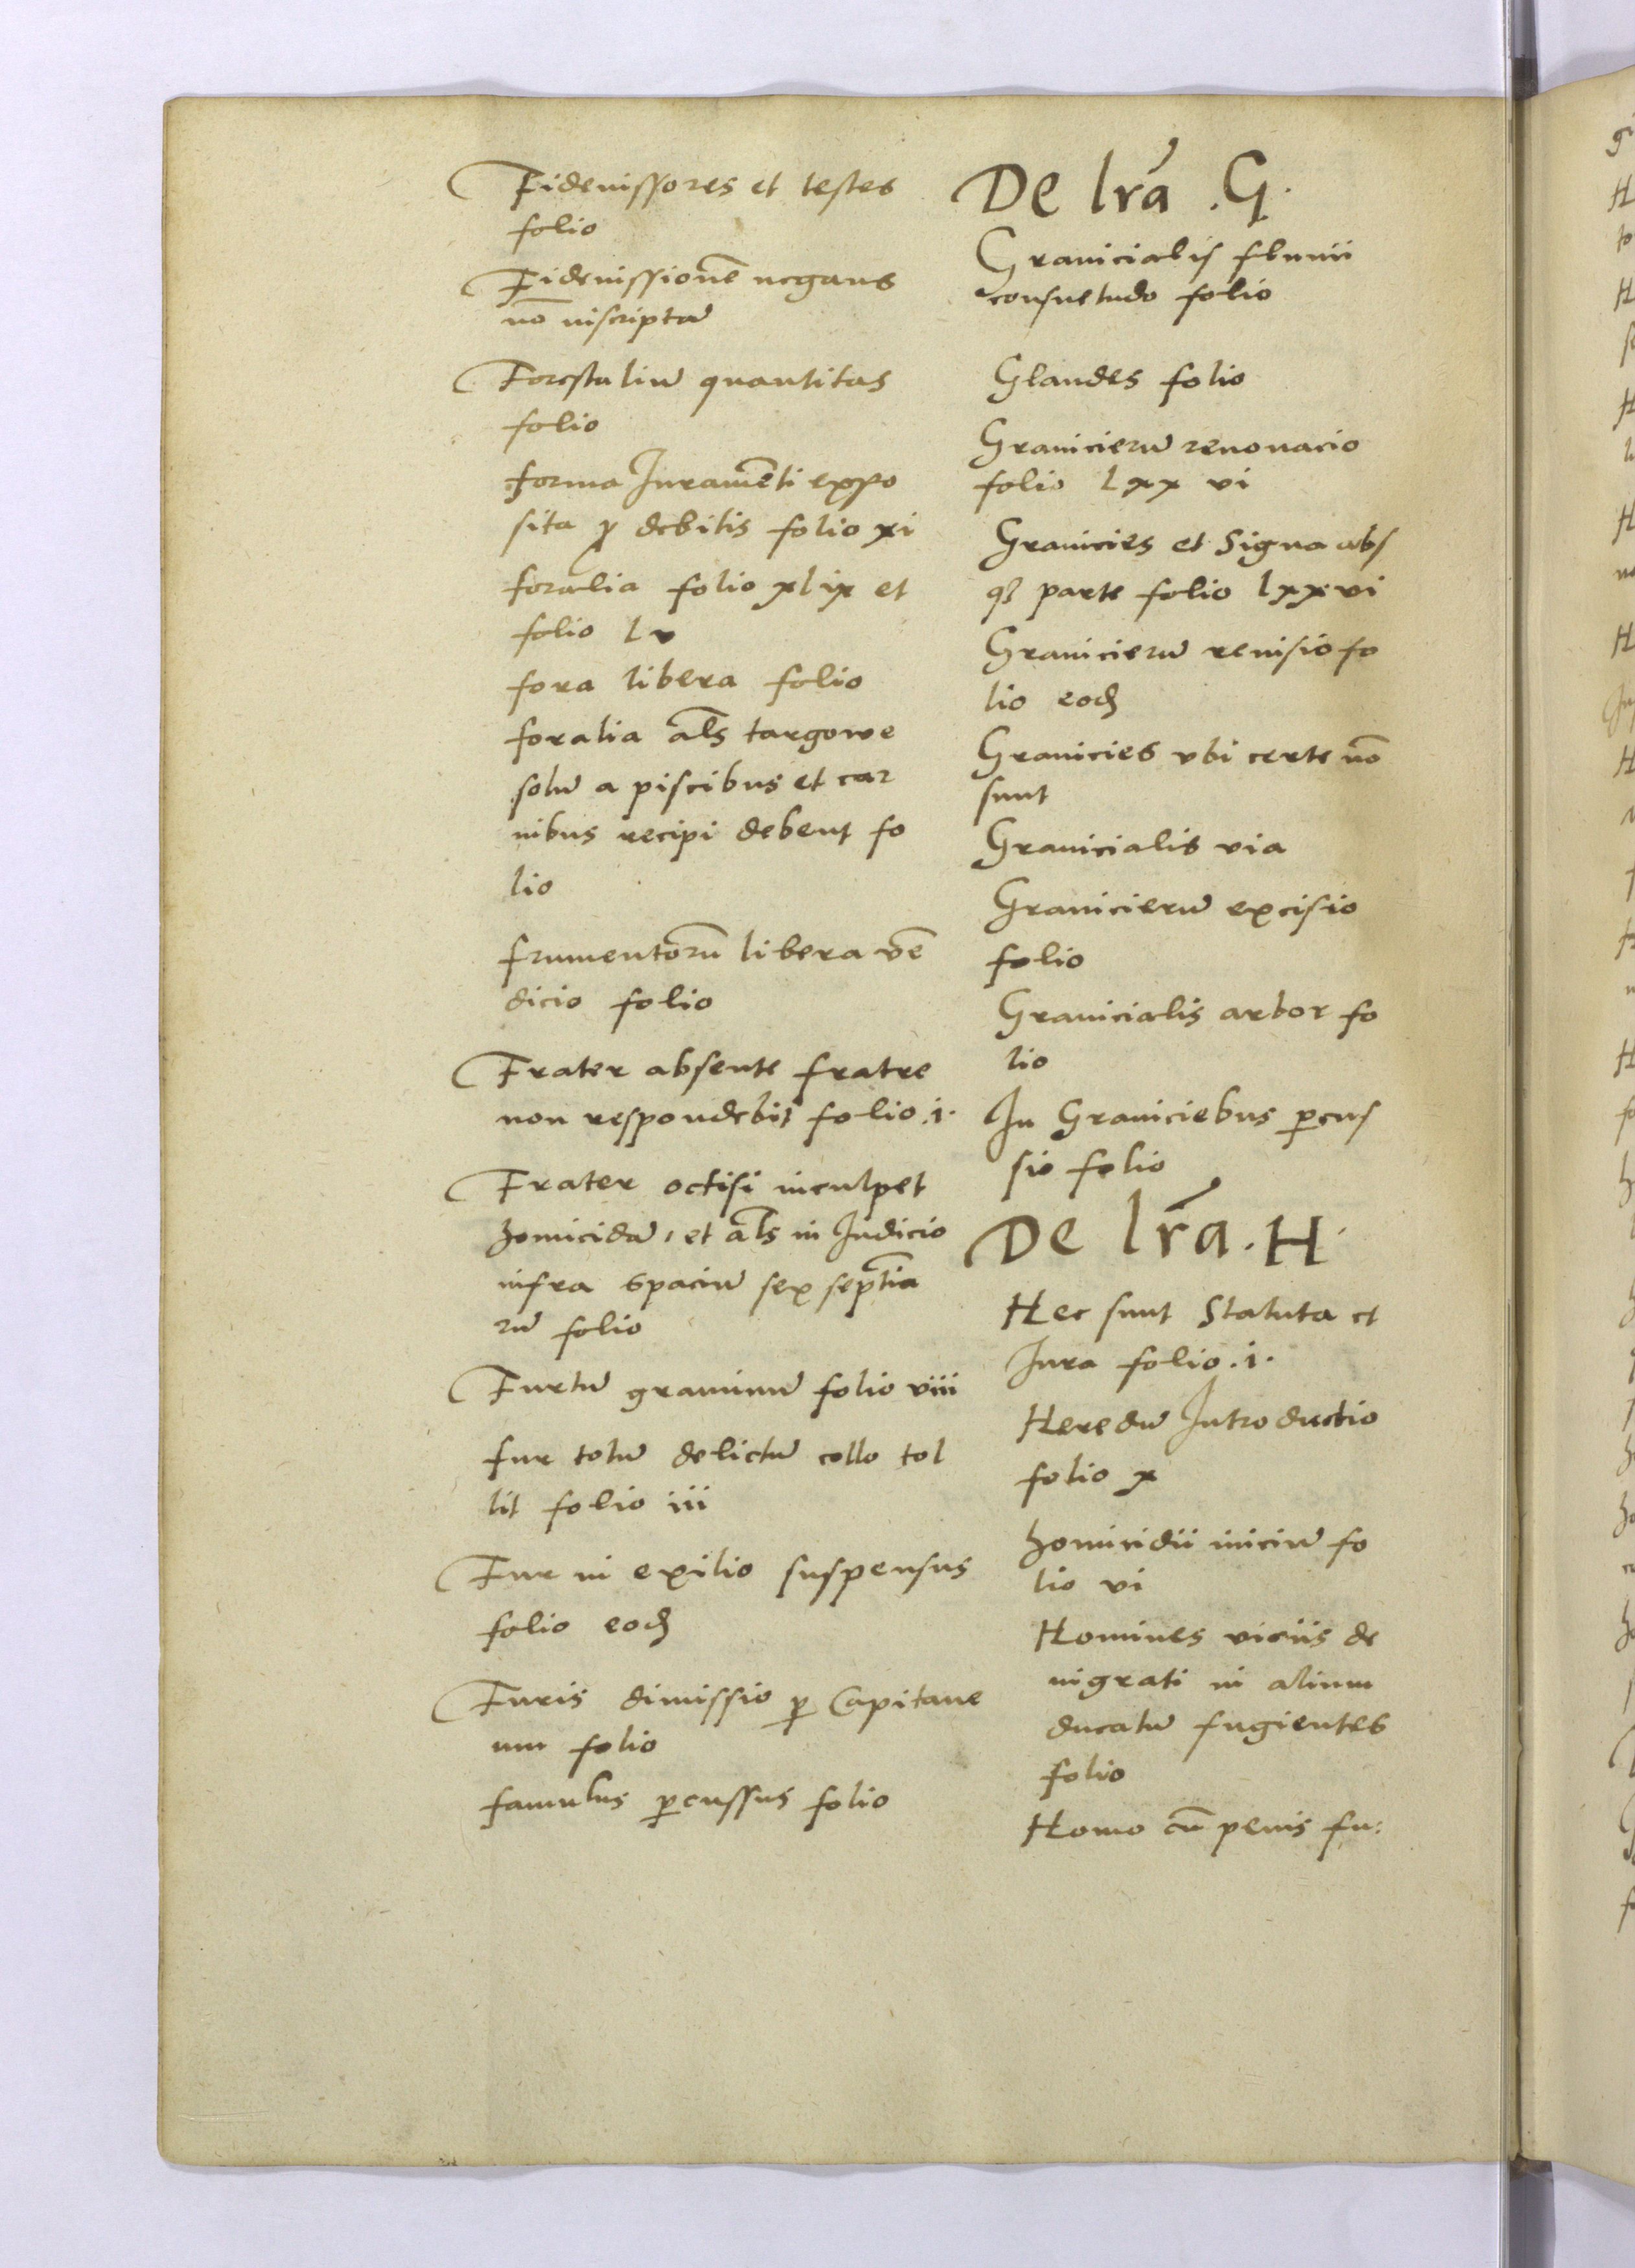 Fideiussores et testes
folio
Fideiussionē negans
nō inscriptā
Forestaliū quantitas
folio
Forma Iuramēti expo
sita ꝓ debitis folio xi
foralia folio xlix et
folio lv
fora libera folio
foralia al̄s targowe
solū a piscibus et car
nibus recipi debent fo
lio
frumentorū libera vē
dicio folio
Frater absente fratre
non respondebit folio .i.
Frater occisi inculpet
homicidā, et al̄s in Iudicio
infra spaciū sex septīa
rū folio
Furtū graminū folio viii
fur totū delictū collo tol
lit folio iii
Fur in exilio suspensus
folio eodꝫ
Furis dimissio ꝑ Capitane
um folio
famulus ꝑcussus folio
De lr̄a .G.
Granicialis fluuii
consuetudo folio
Glandes folio
Granicierū renouacio
folio lxx vi
Granicies et Signa abs
qꝫ parte folio lxxvi
Granicierū reuisio fo
lio eodꝫ
Granicies vbi certe nō
sunt
Granicialis via
Granicierū excisio
folio
Granicialis arbor fo
lio
In Graniciebus ꝑcus
sio folio
De lr̄a .H.
Hec sunt Statuta et
Iura folio .i.
Heredū Introductio
folio x
homicidii iniciū fo
lio vi
Homines viciis de
nigrati in alium
ducatū fugientes
folio
Homo cū penis fu: